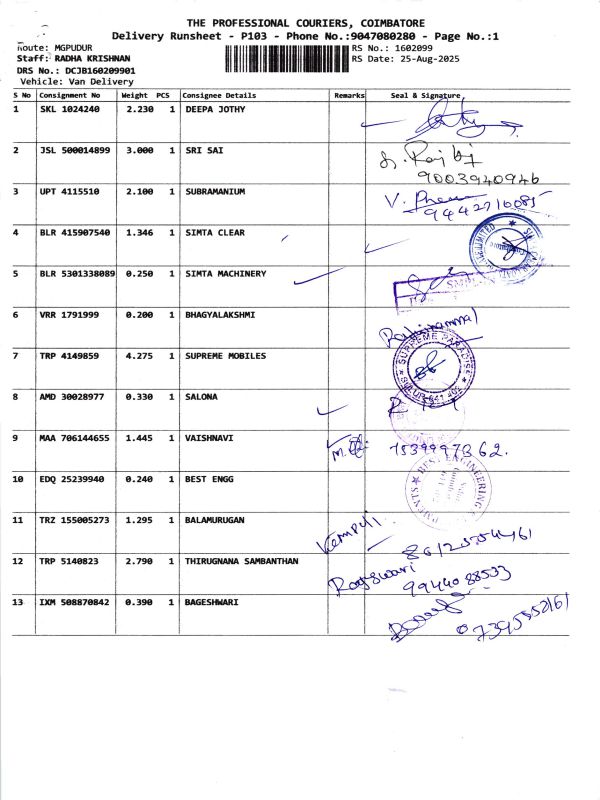 THE PROFESSIONAL COURIERS, COIMBATORE
Delivery Runsheet - P103 - Phone No.:9047080280 - Page No.:1
Route: MGPUDUR RS No.: 1602099
Staff: RADHA KRISHNAN RS Date: 25-Aug-2025
DRS No.: DCJB160209901
Vehicle: Van Delivery
S No Consignment No Weight PCS Consignee Details Remarks Seal & Signature
1 SKL 1024240 2.230 1 DEEPA JOTHY
2 JSL 500014899 3.000 1 SRI SAI
9003940946
3 UPT 4115510 2.100 1 SUBRAMANIUM V.
4 BLR 415907540 1.346 1 SIMTA CLEAR
5 BLR 5301338089 0.250 1 SIMTA MACHINERY
6 VRR 1791999 0.200 1 BHAGYALAKSHMI
7 TRP 4149859 4.275 1 SUPREME MOBILES SUPREME PARADISE
8 AMD 30028977 0.330 1 SALONA
9 MAA 706144655 1.445 1 VAISHNAVI
10 EDQ 25239940 0.240 1 BEST ENGG BEST ENGINEERING
11 TRZ 155005273 1.295 1 BALAMURUGAN
12 TRP 5140823 2.790 1 THIRUGNANA SAMBANTHAN Rajeswari
9944088533
13 IXM 508870842 0.390 1 BAGESHWARI